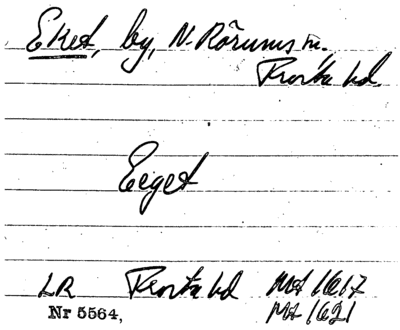 Eket, by, N. Rörums sn.
Frosta hd.
Eeget
LR Frosta hd Ma 1617
Nr 5564, Ma 1621